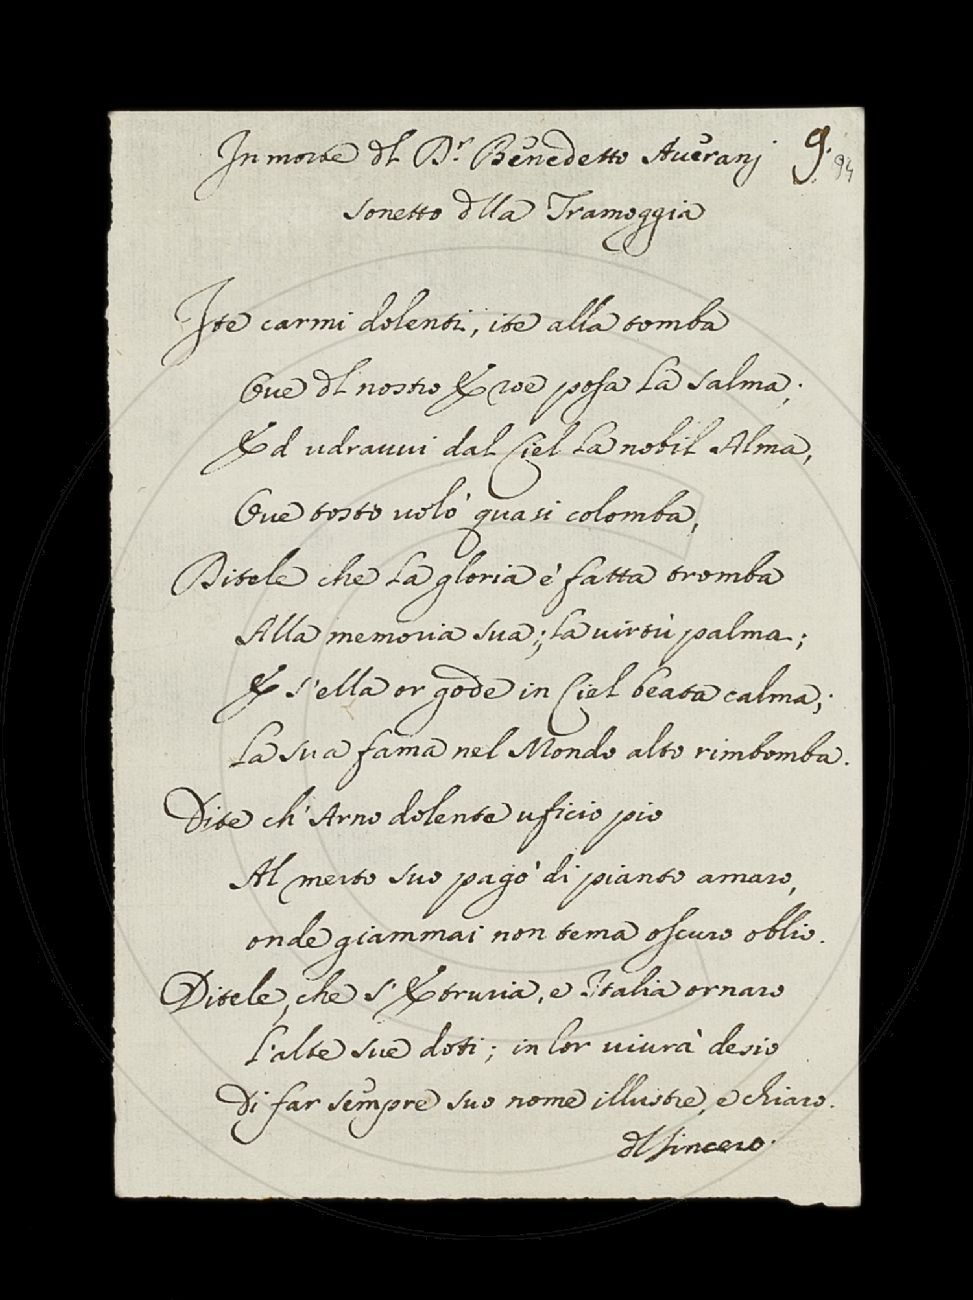 In morte dl Dr. Benedetto Averanj 9. 94
Sonetto dlla Tramoggia
Ite carmi dolenti, ite alla tomba
Oue dl nostro Eroe posa la salma;
Ed udrauui dal Ciel la nobil Alma,
Oue tosto uolò quasi colomba,
Ditele che la gloria è fatta tromba
Alla memoria sua; la uirtù palma;
E s'ella or gode in Ciel beata calma;
La sua fama nel Mondo alto rimbomba.
Dite ch'Arno dolente uficio pio
Al merto suo pagò di pianto amaro,
onde giammai non tema oscuro oblio.
Ditele, che s'Etruria, e Italia ornaro
L'alte sue doti; in lor uiurà desio
Di far sempre suo nome illustre, e chiaro.
dl Sincero.